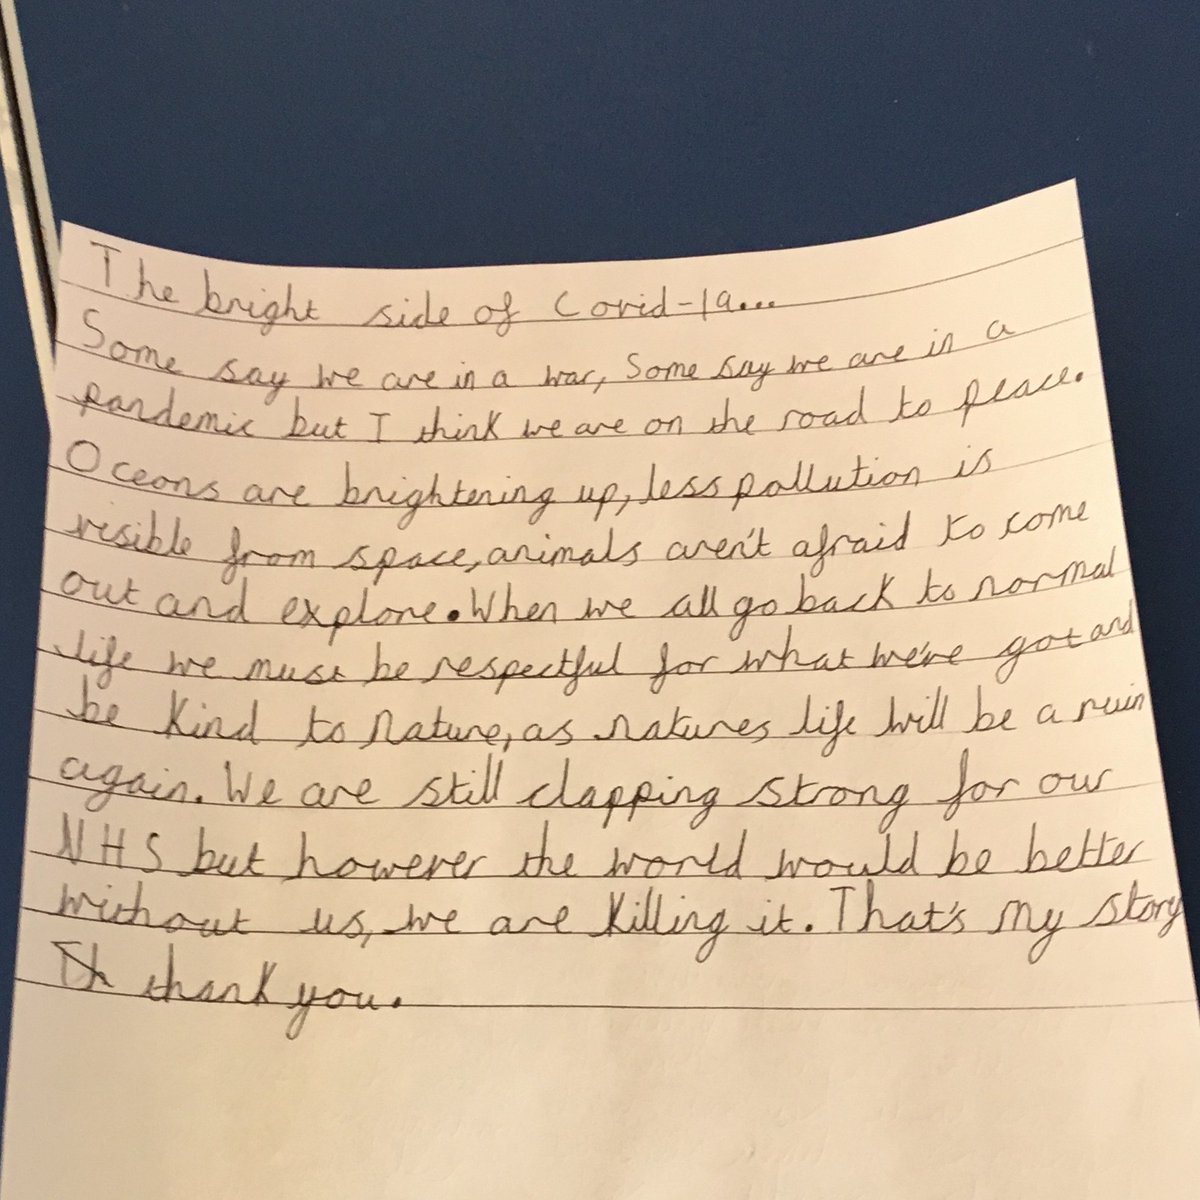 The bright side of Covid-19...
Some say we are in a war, Some say we are in a
pandemic but I think we are on the road to peace.
Oceons are brightening up, less pollution is
visible from space, animals aren't afraid to come
out and explore. When we all go back to normal
life we must be respectful for what we've got and
be kind to nature, as natures life will be a ruin
again. We are still clapping strong for our
NHS but however the world would be better
without us, we are killing it. That's my story
Th thank you.